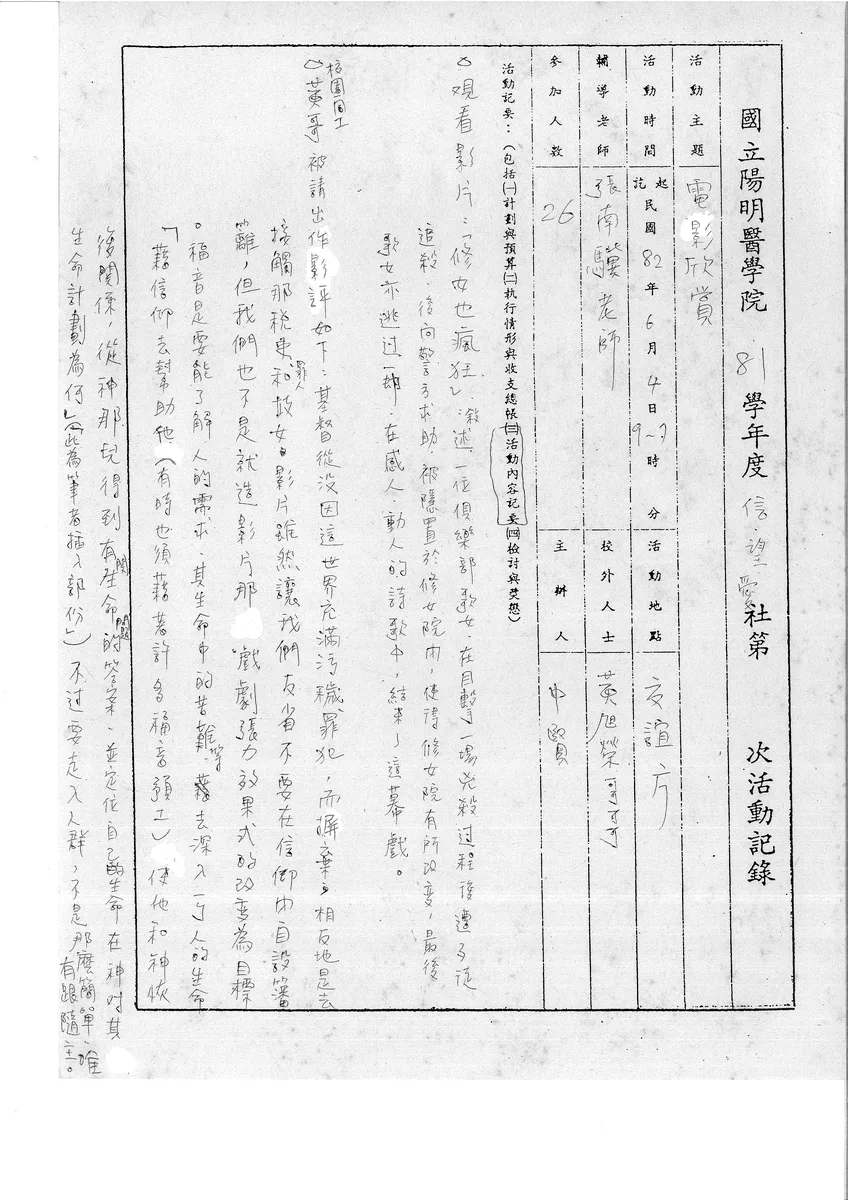 國立陽明醫學院 81 學年度 信望愛社第 次活動記錄
活動主題 電影欣賞
活動時間 起訖 民國 82 年 6 月 4 日 9~ 時 分 活動地點 交誼廳
輔導老師 張南驥老師 校外人士 黃旭榮哥哥
參加人數 26 主辦人
活動記要：（包括㈠計劃與預算㈡執行情形與收支總帳㈢活動內容記要㈣檢討與感想）
觀看影片：「修女也瘋狂」敘述一位俱樂部歌女，在目擊一場兇殺过程後遭歹徒
追殺，後向警方求助，被隱置於修女院內，使得修女院有所改变，最後
歌女亦逃过一劫，在感人動人的詩歌中，結束了這幕戲。
校園同工
黃哥 被請出作影評如下：基督從没因這世界充滿污穢罪犯，而摒棄，相反地是去
接觸那税吏和罪人妓女。影片雖然讓我們反省不要在信仰內自設籓
籬，但我們也不是就造影片那 戲劇張力效果式的改变為目標
。福音是要能了解人的需求，其生命中的苦難等，藉去深入一个人的生命
，藉信仰去幫助他（有時也須藉著許多福音預工）使他和神恢
後関係，從神那兒得到有関生命問題的答案，並定位自己的生命在神对其
生命計劃為何」（此為筆者插入部份）不过要走入人群，不是那麼簡單，唯
有跟隨主。